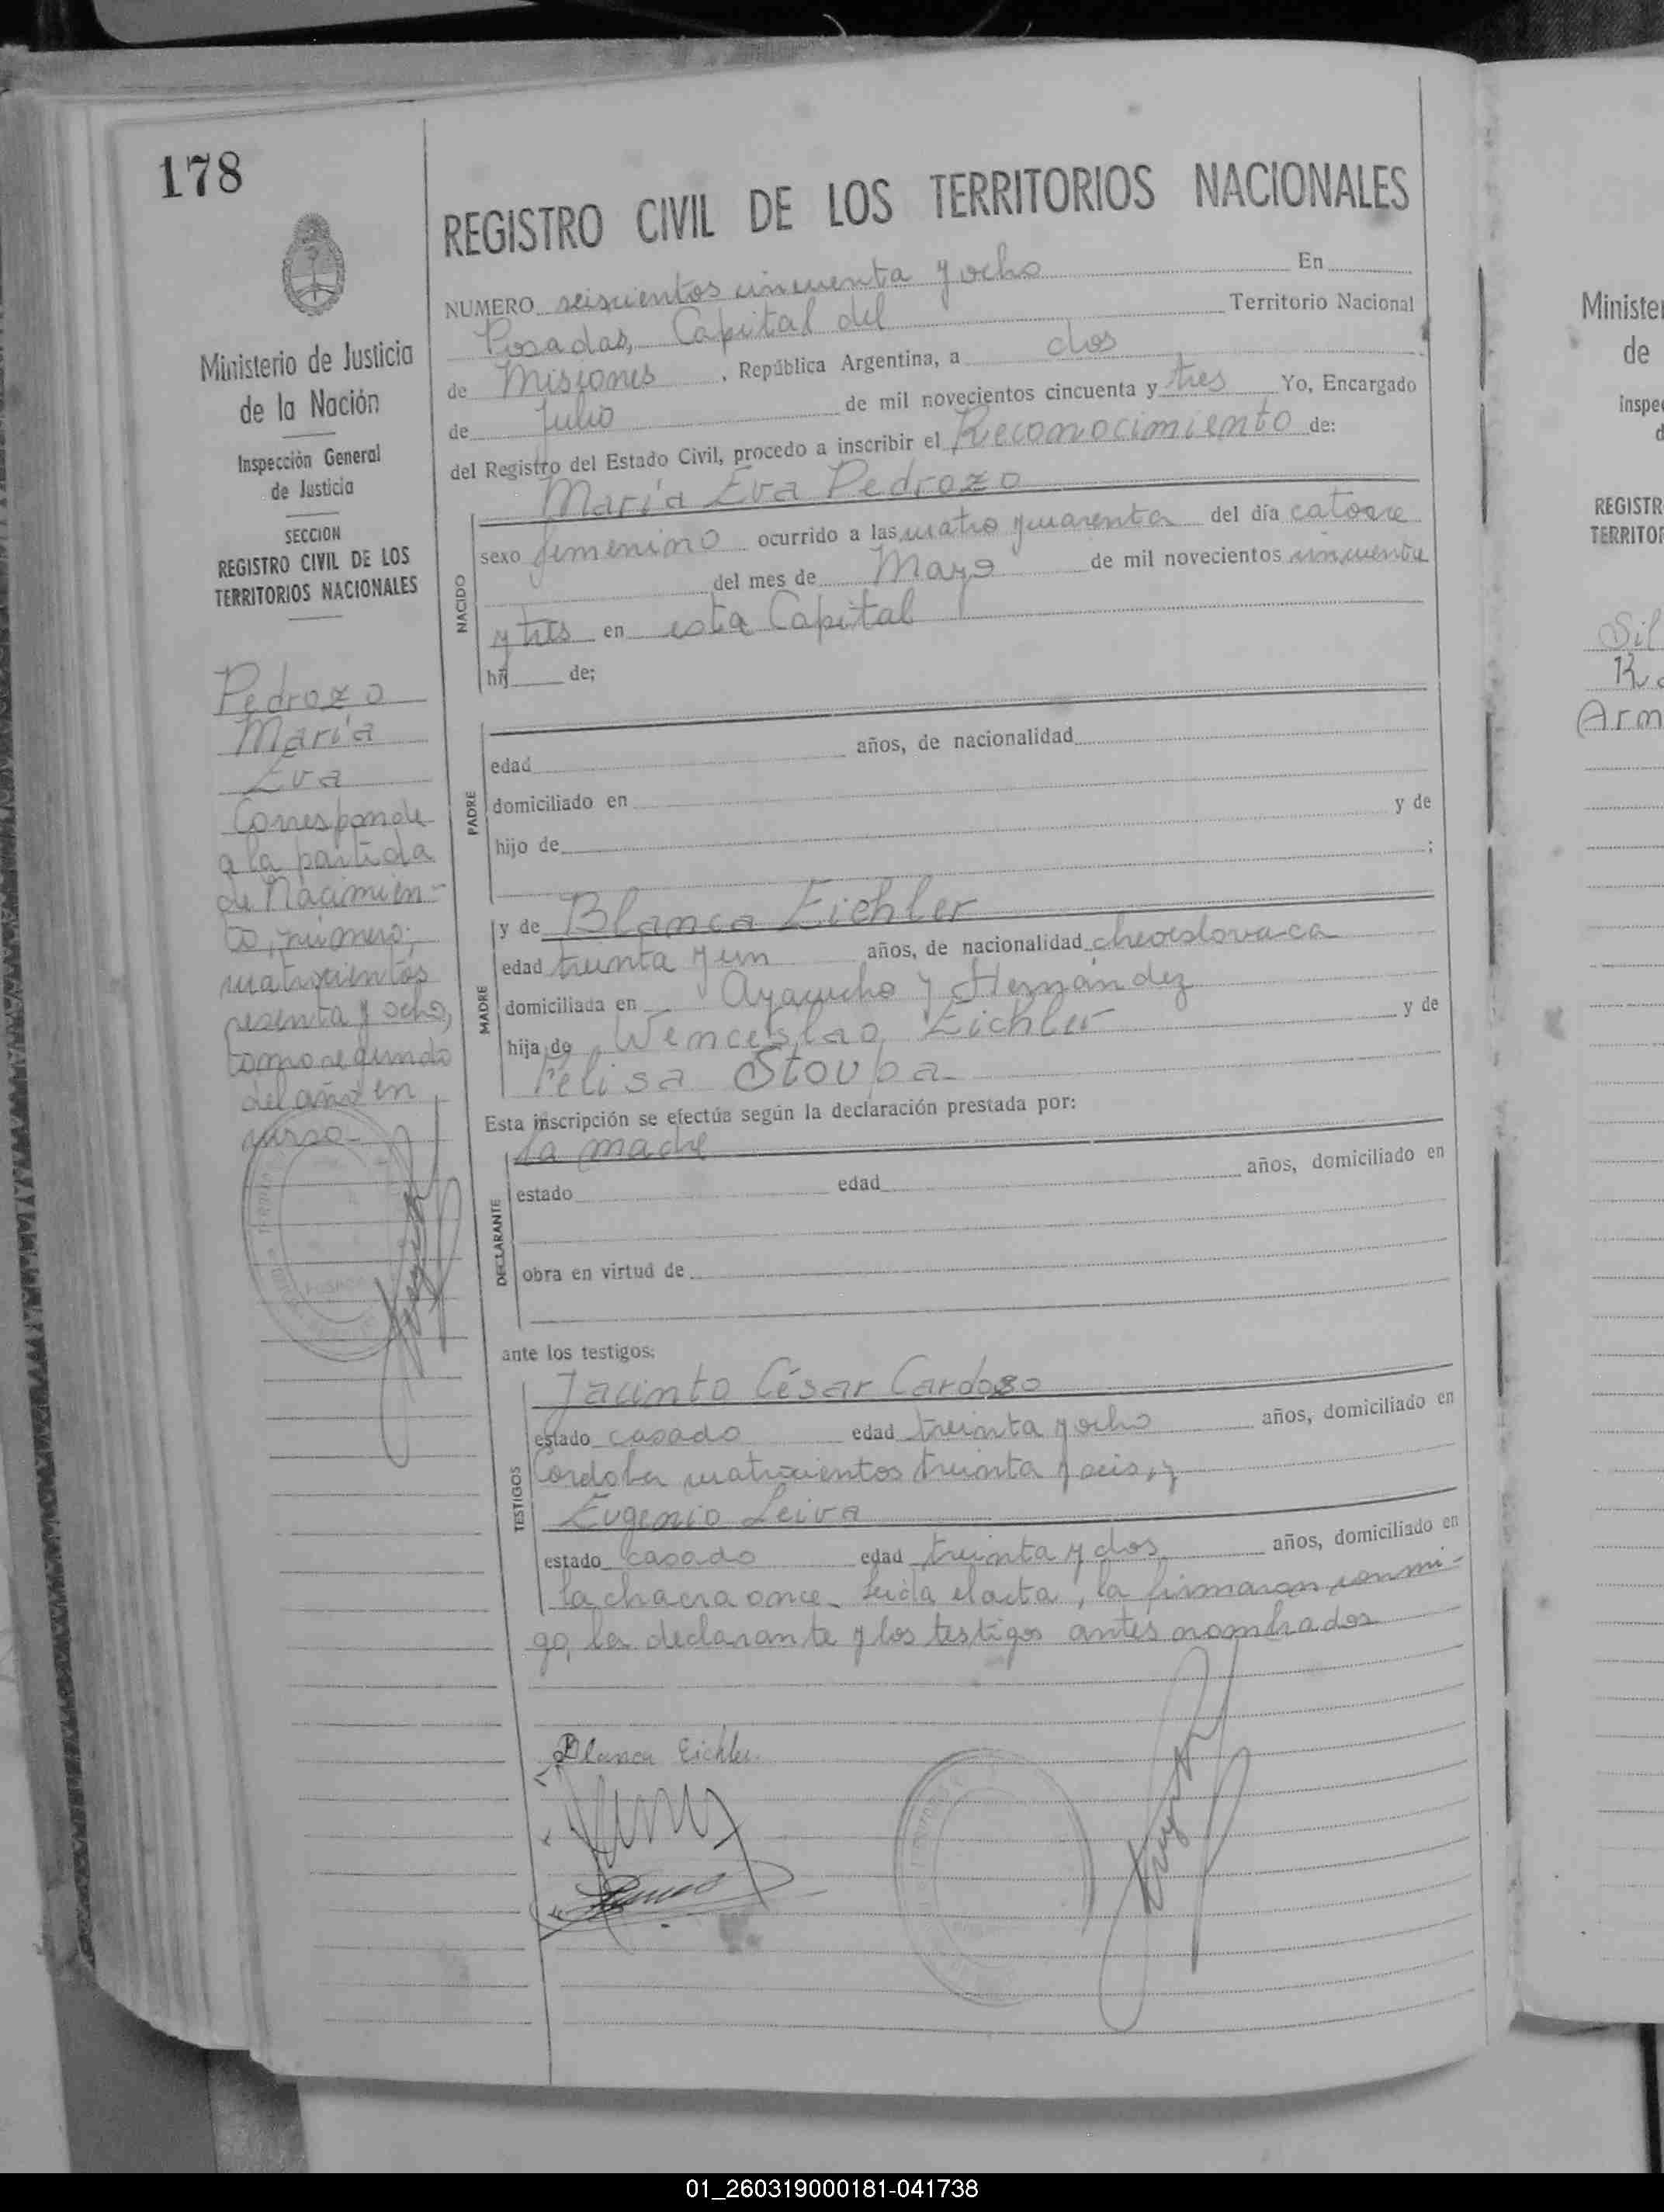 178
REGISTRO CIVIL DE LOS TERRITORIOS NACIONALES
Ministerio de Justicia
de la Nación
Inspección General
de Justicia
SECCION
REGISTRO CIVIL DE LOS
TERRITORIOS NACIONALES
Pedrozo
María
Eva
Corresponde
a la partida
de Nacimien-
to, número,
cuatrocientos
sesenta y ocho,
tomo segundo
del año en
curso-
NUMERO seiscientos cincuenta y ocho En
Posadas, Capital del Territorio Nacional
de Misiones, República Argentina, a dos
de Julio de mil novecientos cincuenta y tres Yo, Encargado
del Registro del Estado Civil, procedo a inscribir el Reconocimiento de:
María Eva Pedrozo
NACIDO
sexo femenino ocurrido a las cuatro y cuarenta del día catorce
del mes de Mayo de mil novecientos cincuenta
y tres en esta Capital
hij de;
PADRE
edad años, de nacionalidad
domiciliado en
hijo de y de
;
MADRE
y de Blanca Eichler
edad treinta y un años, de nacionalidad checoslovaca
domiciliada en Ayacucho y Hernández
hija de Wenceslao Eichler y de
Felisa Stouba-
Esta inscripción se efectúa según la declaración prestada por:
DECLARANTE
la madre
estado edad años, domiciliado en
obra en virtud de
ante los testigos:
TESTIGOS
Jacinto César Cardozo
estado casado edad treinta y ocho años, domiciliado en
Córdoba cuatrocientos treinta y seis, y
Eugenio Leiva
estado casado edad treinta y dos años, domiciliado en
la chacra once- Leída el acta, la firmaron conmi-
go, la declarante y los testigos antes nombrados
Blanca Eichler
Ministe
de
Inspe
d
REGISTR
TERRITOR
Sil
Arm
01_260319000181-041738